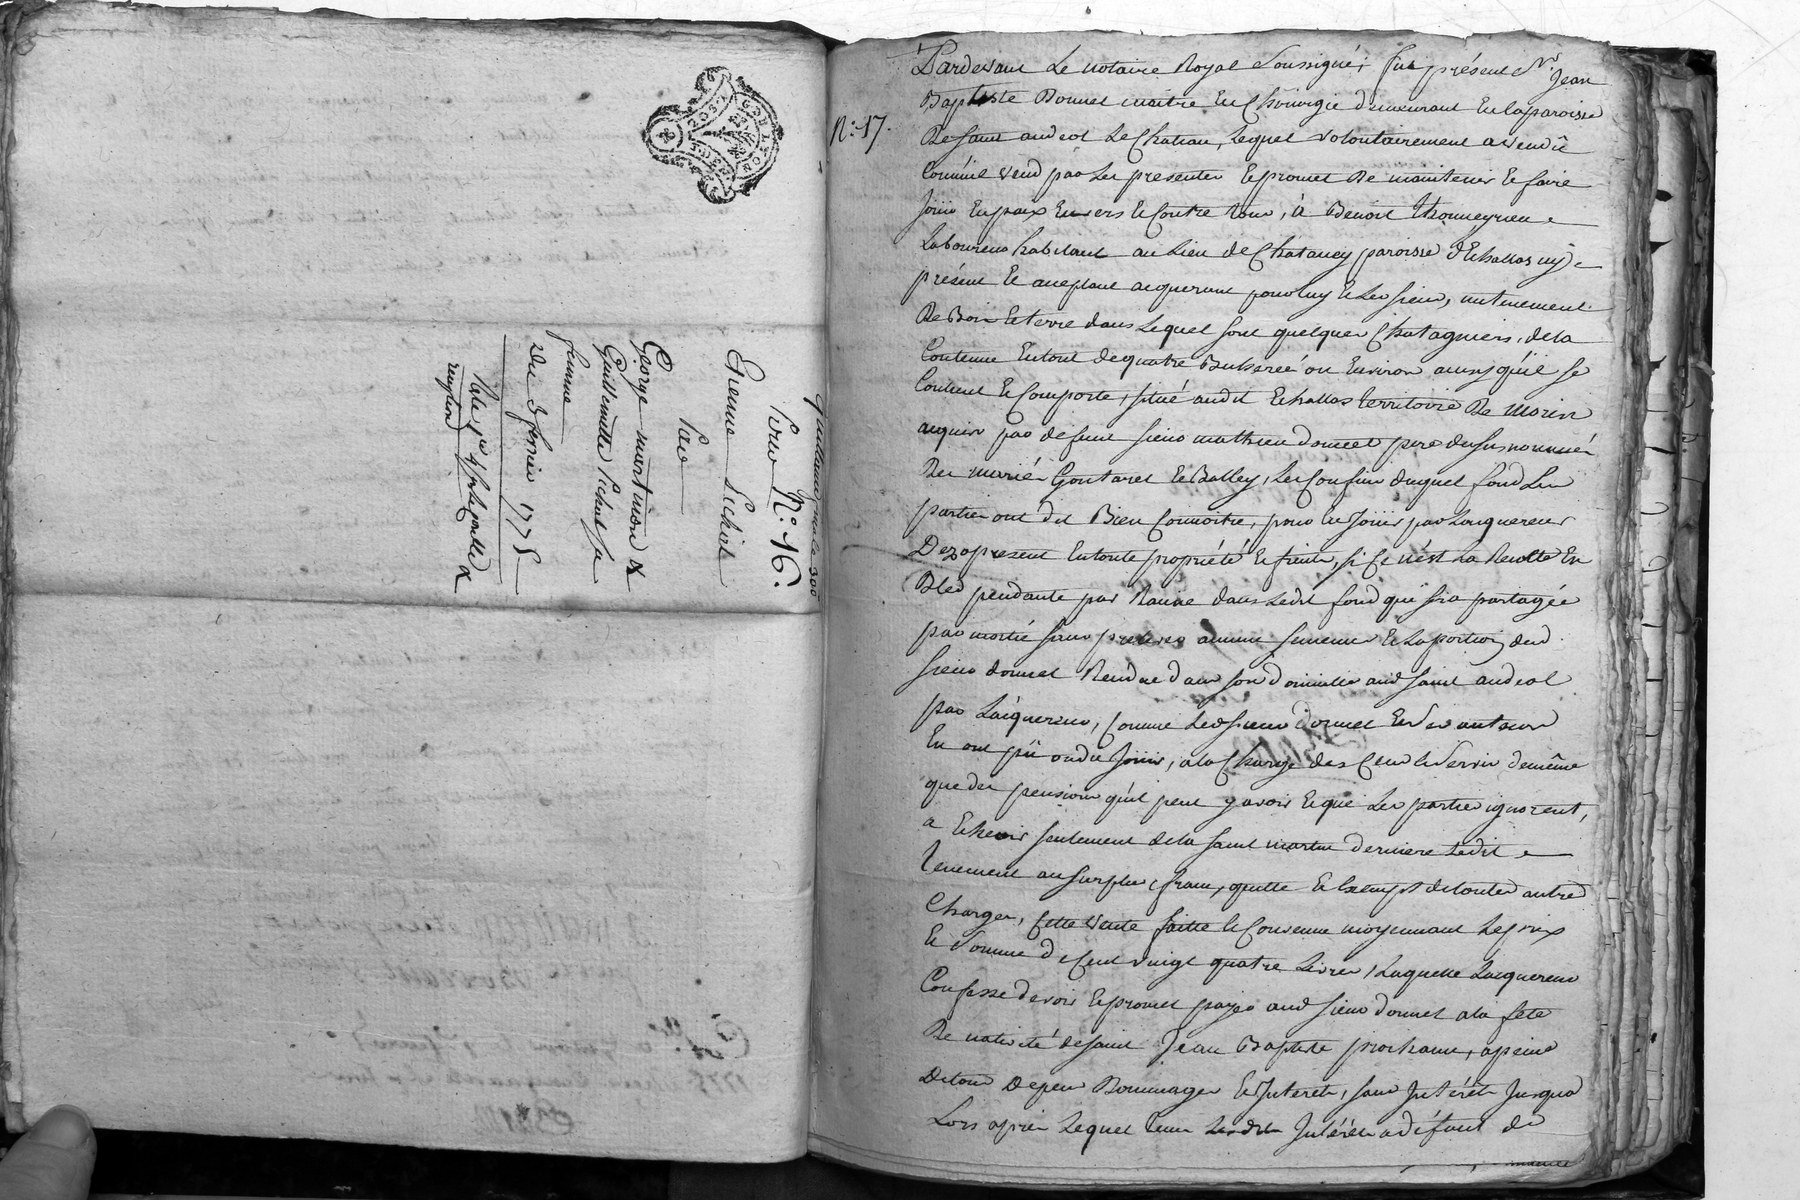 Pour N.o 16.
Etienne Pichot
Par
George martinon &
Guillemette Pichot sa
femme
Du 3 fevrier 1775
N.o 17.
Pardevant Le notaire Royal Soussigné; fut présent Sr. Jean
Baptiste Donnet maitre En Chirurgie demeurant En la paroisse
De Saint andeol Le Chateau, Lequel volontairement a vendû
Comme il vend par Les presentes Et promet De maintenir Et faire
Joüir En paix Envers Et Contre tous, à Benoit thonneyrieu
Laboureur habitant au Lieu de Chataney paroisse d'Echallas icy
présent Et aceptant acquereur pour luy Et Les siens, un tenement
De Bois Et terre dans Lequel sont quelques Chatagniers, de la
Contenue En tout de quatre Bicherée ou Environ ainsy qu'il se
Contient Et Comporte, situé audit Echallas territoire De Morin
acquis par defunt sieur mathieu donnet pere du susnommé
Des mariés Goutarel Et Balley, Les Confins duquel fond Les
parties ont dit Bien Connoitre, pour En Joüir par Lacquereur
Dezapresent En toute propriété Et fruits, si Ce n'est La Recolte En
Bled pendante par Racine dans Ledit fond qui sera partagée
par moitié sans prelever aucune semence Et La portion dud.
sieur donnet Rendüe dans son domicile aud saint andeol
par Lacquereur, Comme Led sieur donnet Et Ses auteurs
En ont pû ou dû Joüir, a la Charge des Cens Et Servis de même
que des pensions qu'il peut y avoir Et que Les parties ignorent,
a Echeoir seulement de la saint martin derniere Ledit
tenement au surplus franc, quitte Et Exempt de toutes autres
Charges, Cette vente faitte Et Convenue moyennant Le prix
Et Somme de Cent vingt quatre Livres, Laquelle Lacquereur
Confesse devoir Et promet payer aud sieur donnet a la fete
De nativité de saint Jean Baptiste prochaine, a peine
De tous Depens Dommages Et Interets, sans Intérêt Jusqua
Lors après Lequel tems Lesdits Intérêts a défaut de